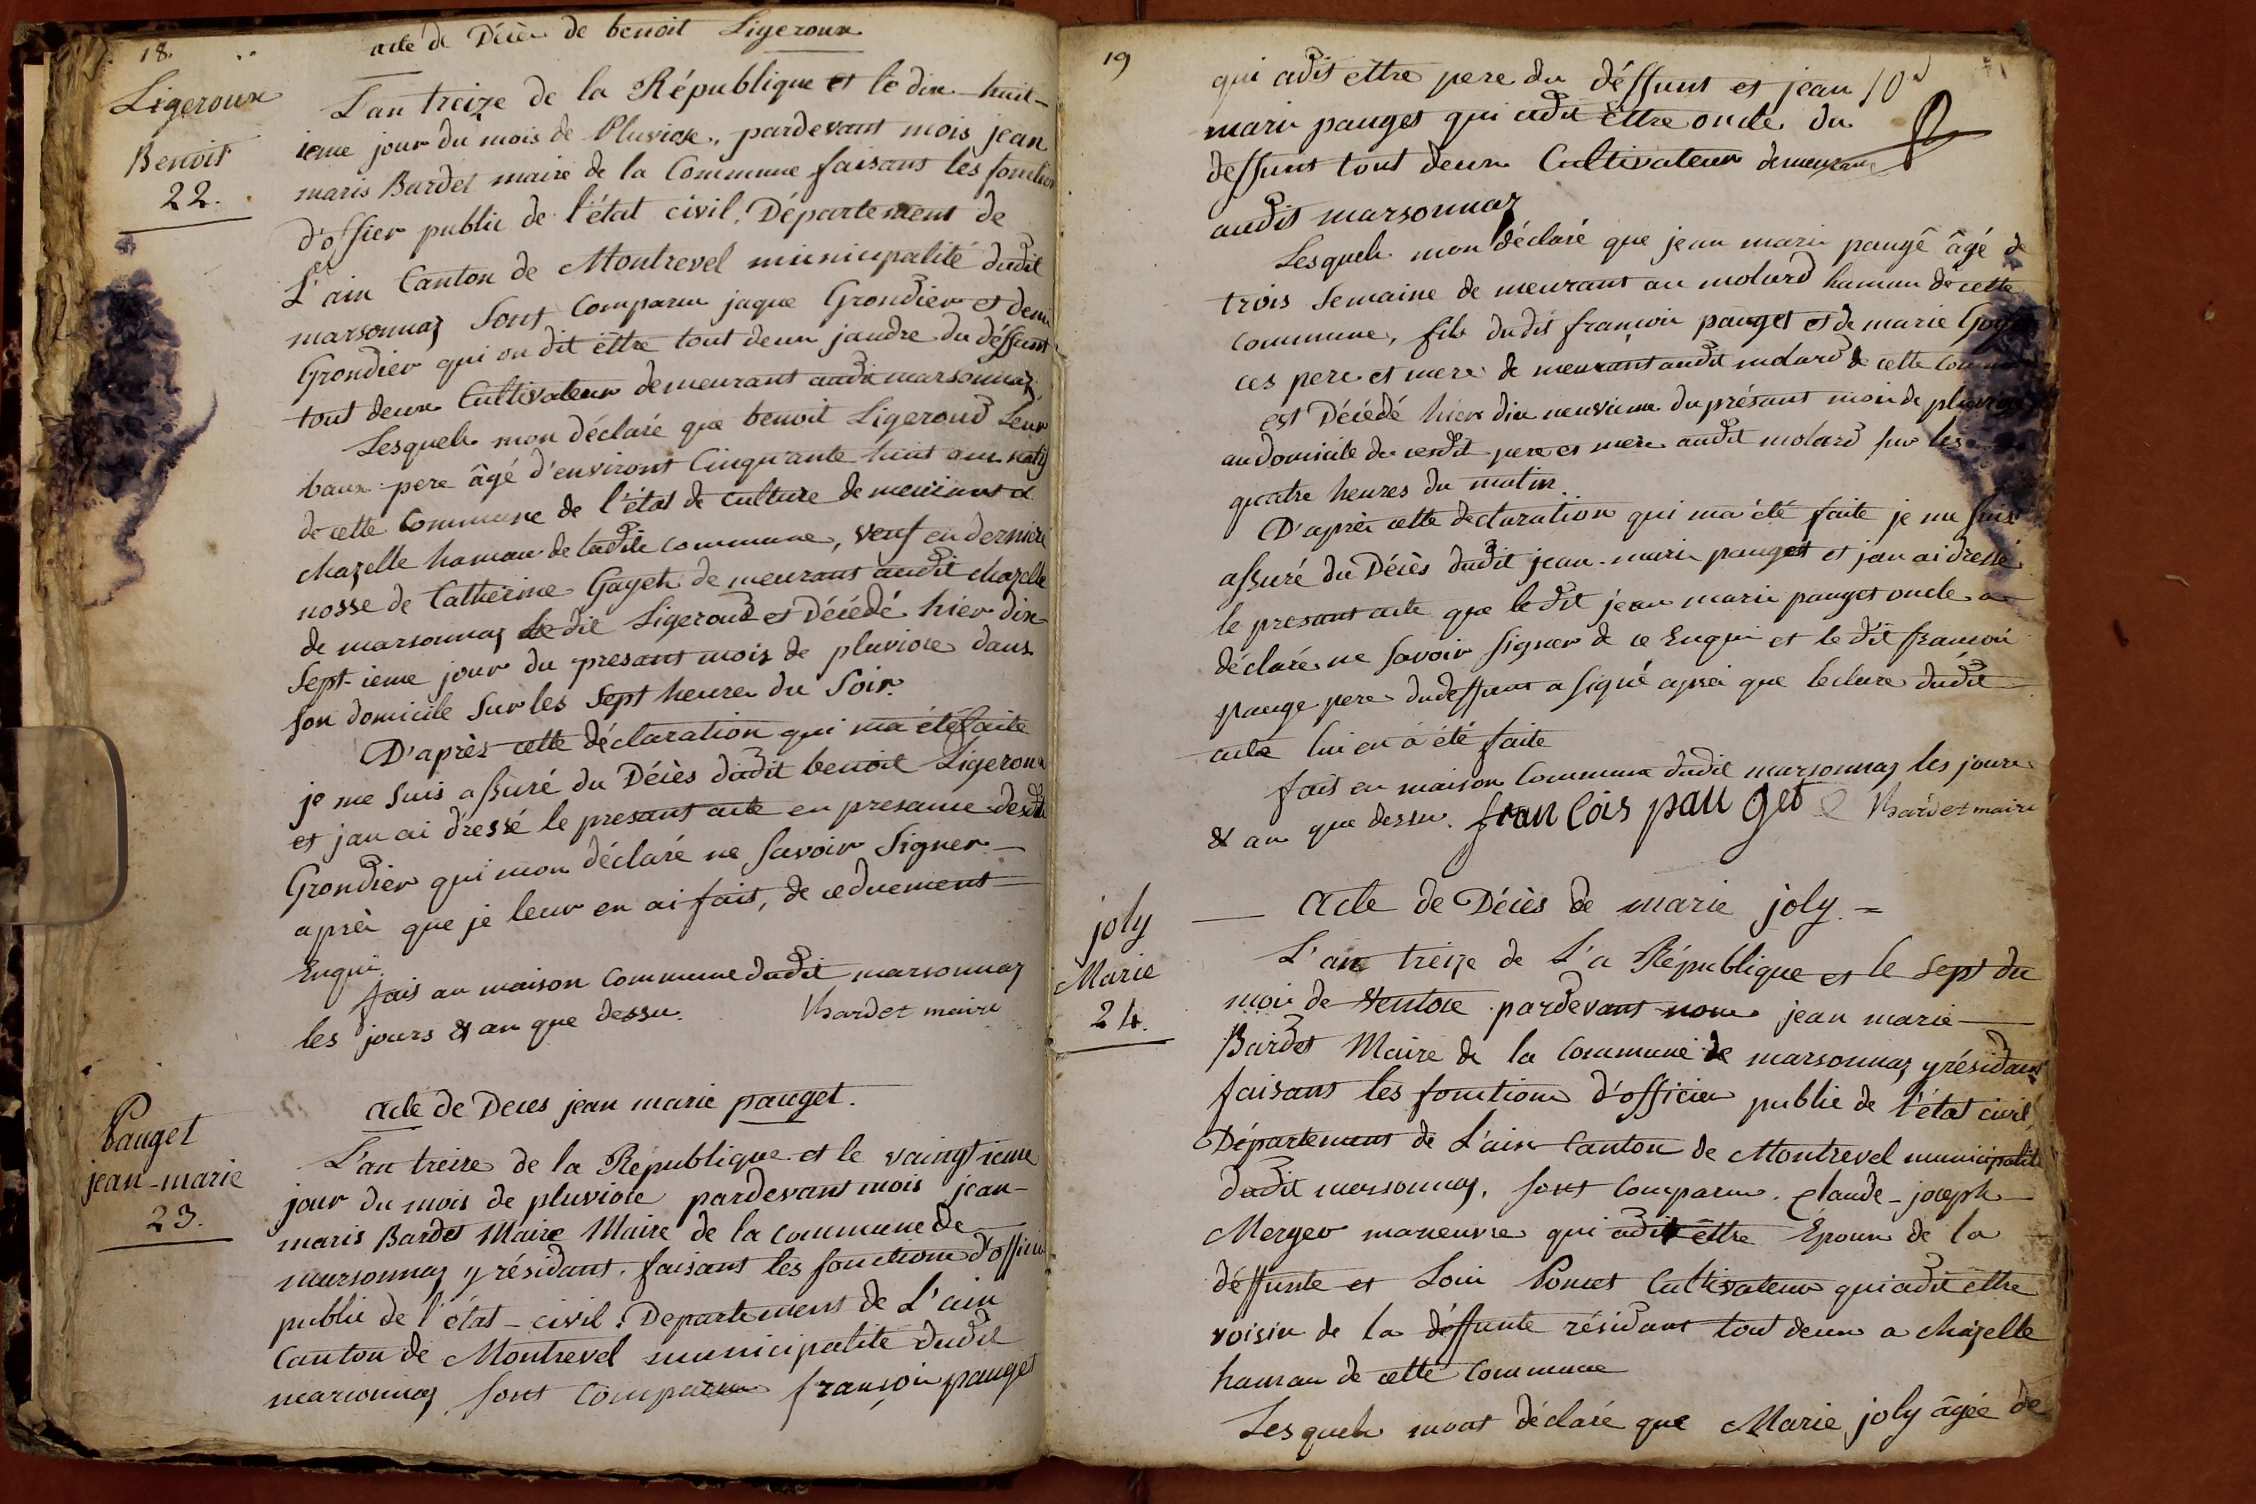 18.
acte de Décès de benoit Ligeroux
Ligeroux
Benoit
22.
L'an treize de la République et le dix huit-
ieme jour du mois de Pluviose, pardevant mois jean
maris Bardet maire de la Commune faisant les fonction
d'offier public de l'état civil, Département de
L'ain Canton de Montrevel municipalité dudit
marsonnaz Sont Comparu jaque Grondier et deni
Grondier qui on dit être tout deux jandre du déffunt
tout deux Cultivateur demeurant audit marsonnaz
Lesquels mon déclaré que benoit Ligeroud Leur
baux-pere âgé d'environt Cinquante huit ans natif
de cette Commune de l'état de culture demeurant a
chazelle hamau de ladite commune, veuf en derniere
nosse de Catherine Gayet demeurant audit chazelle
de marsonnaz Ledit Ligeroud et Décédé hier dix-
Sept-ieme jour du presant mois de pluviose dans
son domicile Sur les Sept heures du Soir.
D'après cette déclaration qui ma été faite
je me suis assuré du Décès dudit benoit Ligeroux
et jan ai dressé le presant acte en presance desdit
Grondier qui mon déclaré ne Savoir Signer
après que je leur en ai fait, de ce duement
Enqui.
fait au maison Commune dudit marsonnaz
les jours & an que dessu. Bardet maire
Pauget
jean-marie
23.
acte de Deces jean marie pauget.
L'an treize de la République et le vaingtieme
jour du mois de pluviose pardevant mois jean-
maris Bardet Maire Maire de la Commune de
marsonnaz y résidant. faisant les fonctions d'officier
public de l'état-civil. Departement de L'ain
Canton de Montrevel municipalité dudit
marsonnaz sont comparu françois pauget
19
qui adit ettre pere du déffunt et jean
marie pauget qui adit êttre oncle du
deffunt tout deux Cultivateur demeurant
audit marsonnaz
Lesquels mon déclaré que jean marie paugé âgé de
trois Semaine demeurant au molard hamau de cette
commune, fils dudit françois pauget et de marie
ces pere et mere demeurant audit molard de cette commune
est Décédé hier dix neuvieme du présant mois de pluviose
au domicile du cesdit pere et mere audit molard sur les
quatre heures du matin
D'après cette declaration qui ma été faite je me suis
assuré du Décès dudit jean-marie pauget et jan ai dressé
le presant acte que le dit jean marie pauget oncle a
déclaré ne savoir signer de ce Enqui et le dit françoi
pauge pere du deffunt a signé après que lecture dudit
acte lui en a été faite
fait en maison Commune dudit marsonnaz les jours
& an que dessu. fran cois pau get Bardet maire
joly
Marie
24.
Acte de Décès de marie joly =
L'an treize de L'a République et le sept du
mois de Ventose pardevant nous jean marie
Bardet Maire de la Commune de marsonnaz y résidant
faisant les fonctions d'officier public de l'état civil,
Département de L'ain Canton de Montrevel municipalité
dudit marsonnaz. sont comparu. claude-joseph
Merger maneuvre qui adit êttre Epoux de la
déffunte et Loui Poncet Cultivateur qui adit ettre
voisin de la déffunte résidant tout deux a chazelle
hamau de cette Commune
Lesquels mont déclaré que Marie joly âgée de